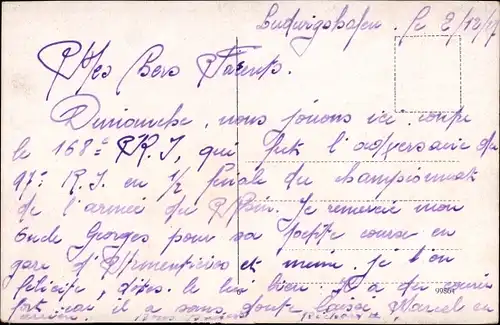 Ludwigshafen. Le 2/12/19
Mes Bons Parents.
Dimanche, nous jouons ici contre
le 168e R.I, qui fut l'adversaire du
97e R.I. en 1/2 finale du championnat
de l'armée du Rhin. Je remercie mon
Oncle Georges pour sa petite course en
gare d'Armentières et même je l'en
félicite, dites-le lui bien. Il a du courir
fort car il a sans doute laissé Marcel en
99864